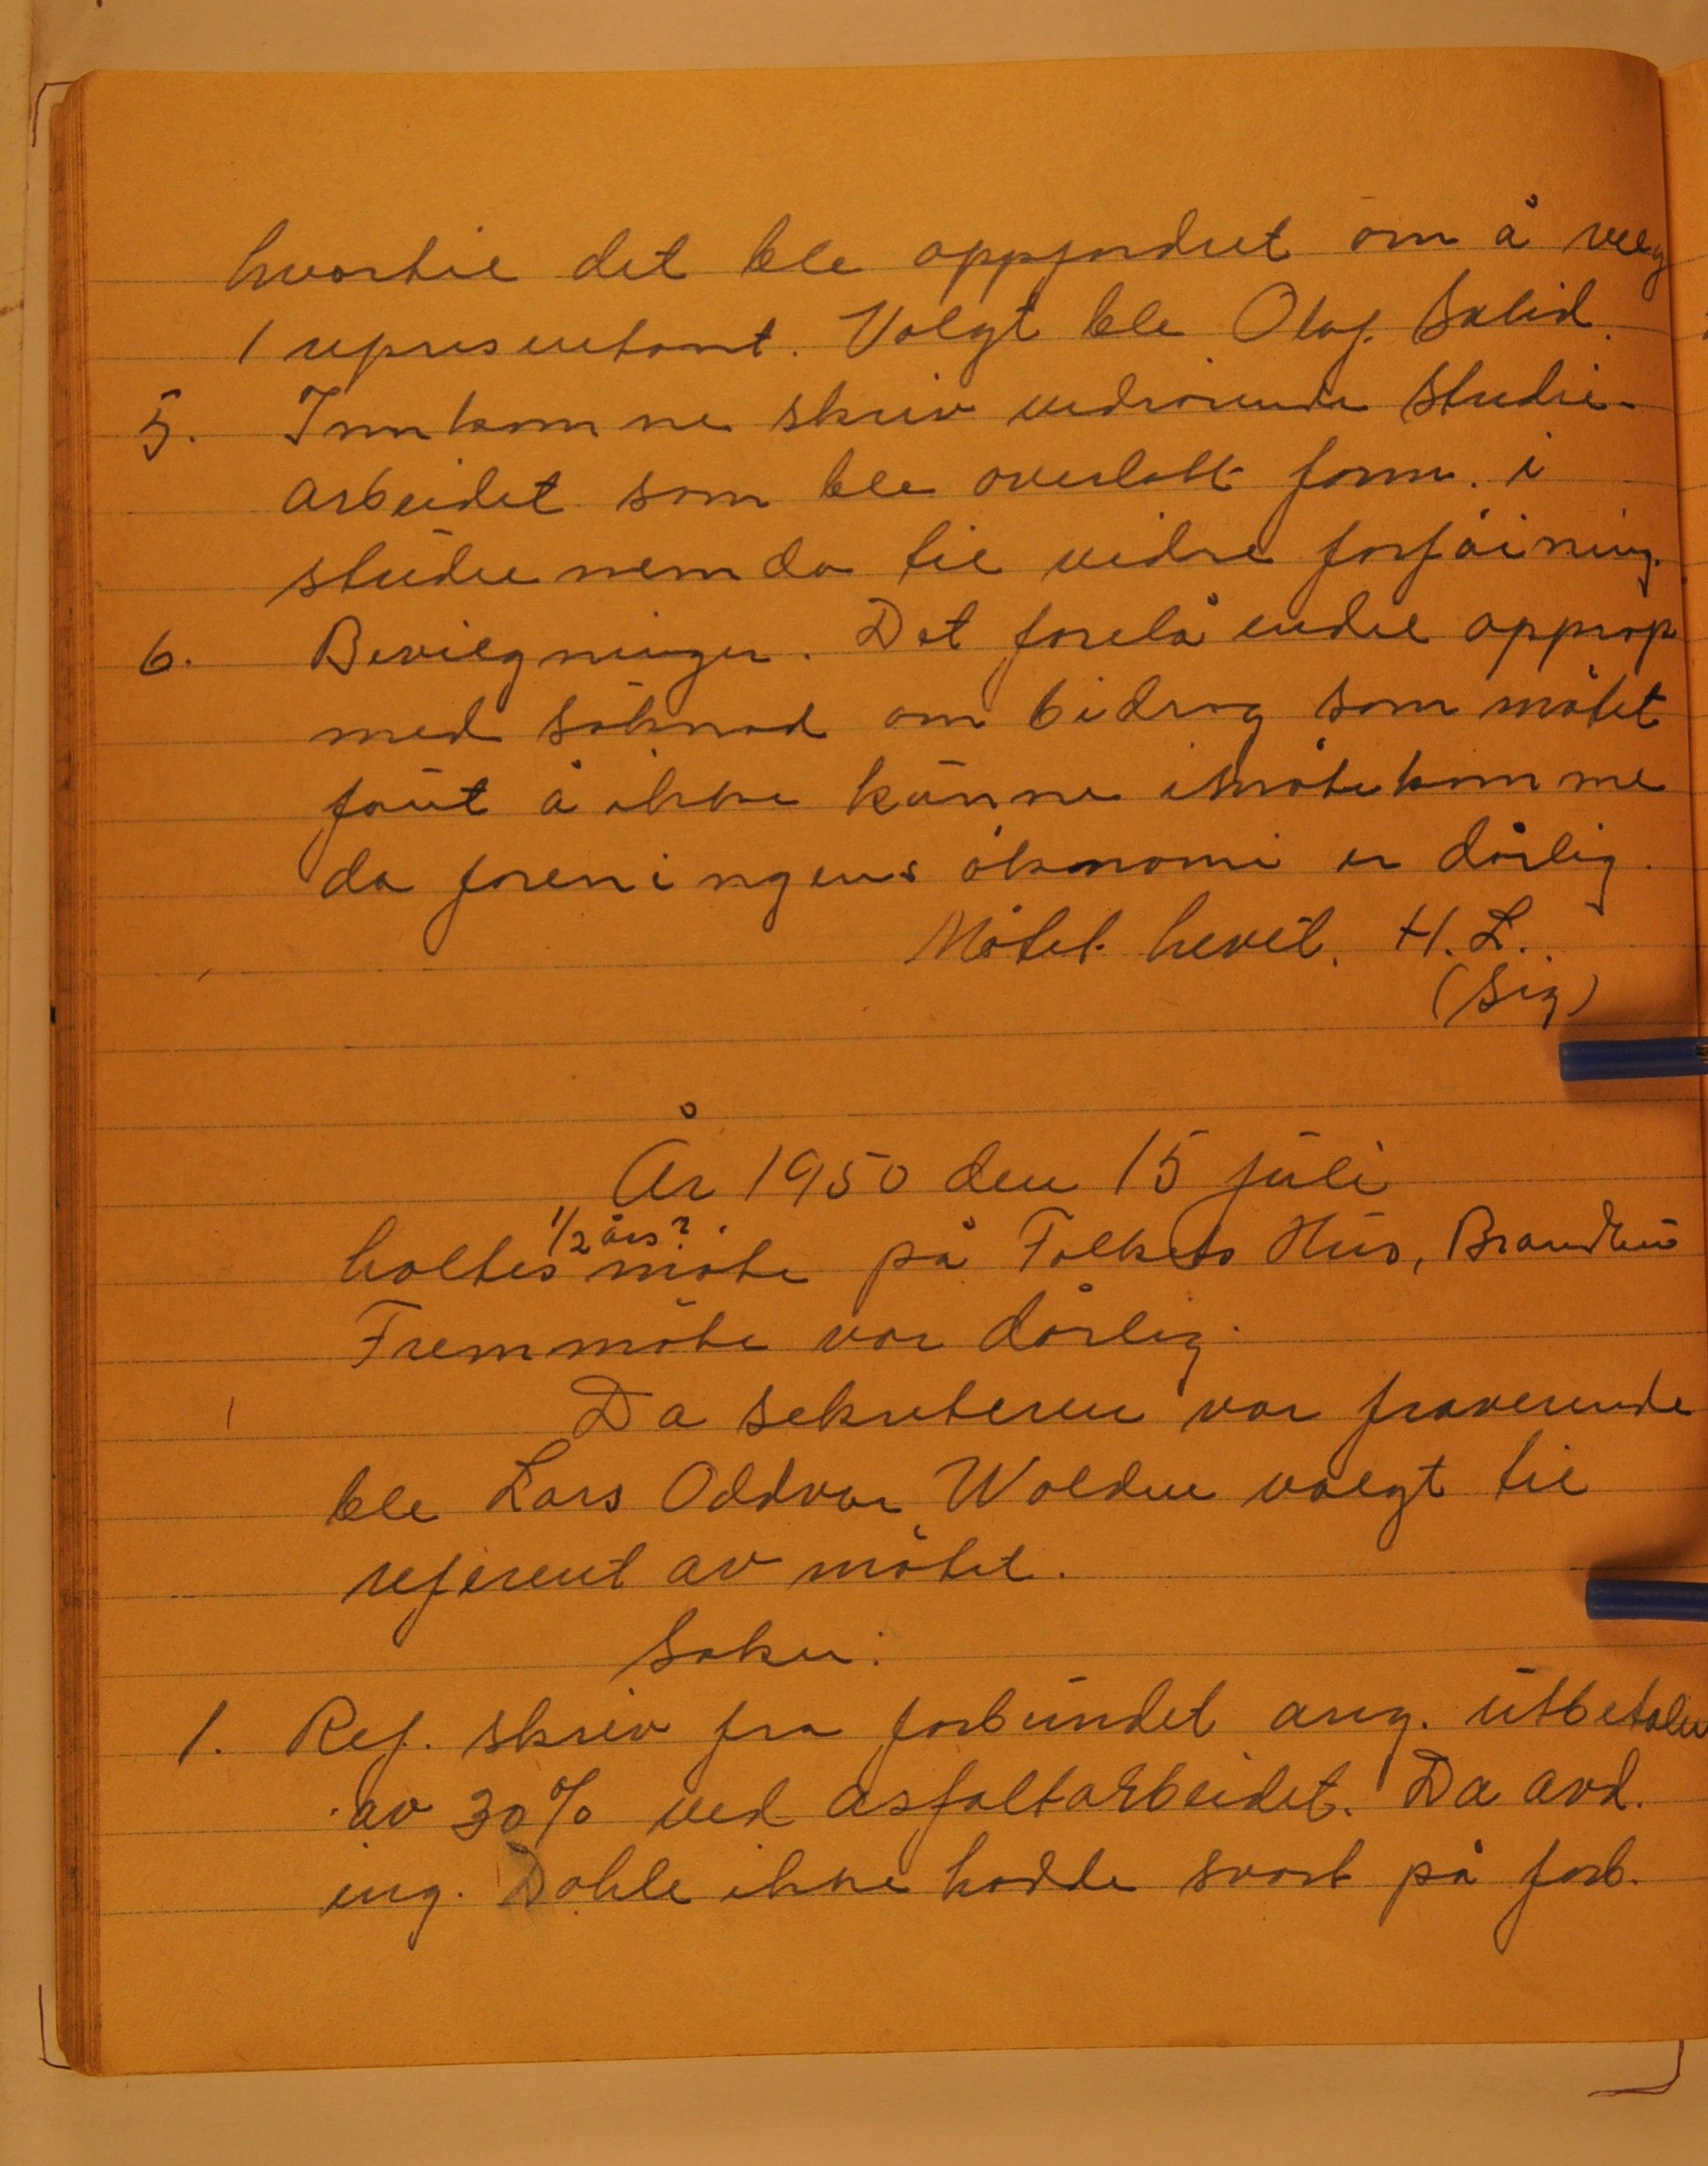 hvortil det ble oppfordret om å velg
1 representant. Valgt ble Olaf
5. Innkomne skriv vedrörende studie-
arbeidet som ble overlatt form. i
studienemda til vidre forföining.
6. Bevilgninger. Det forelå endel opprop
med söknad om bidrag som mötet
fant å ikke kunne imötekomme
da foreningens ökonomi er dårlig.
Mötet hevet. H. L.
(Sig)
År 1950 den 15 juli
1/2 års?
holtes möte på Folkets Hus, Brandbu
Fremmöte var dårlig.
Da sekreteren var fraverende
ble Lars Oddvar Wolden valgt til
referent av mötet.
Saker:
1. Ref. skriv fra forbundet ang. utbetalin
av 30% ved asfaltarbeidet. Da avd.
ing. Dahle ikke hadde svart på forb.